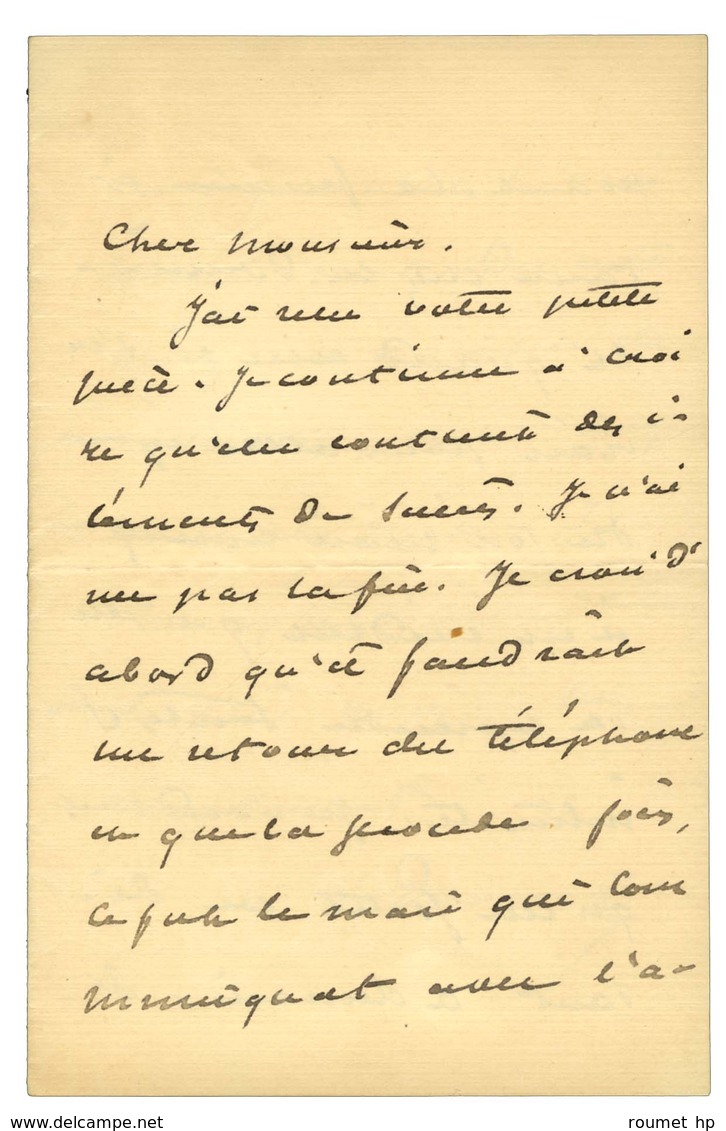 Cher Monsieur.
J'ai relu votre petite
pièce. Je continue à croi
re qu'elle contient des é-
léments de succès. Je n'ai
me pas la fin. Je crois d'
abord qu'il faudrait
un retour du téléphone
et que la seconde fois,
ce fut le mari qui com
muniquat avec l'a-
roumet hp
www.delcampe.net